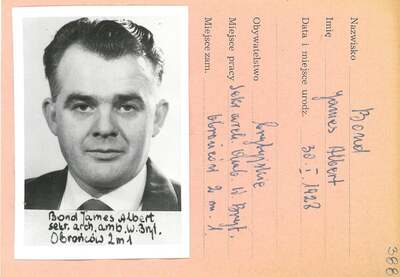 Nazwisko Bond
Imię James Albert
Data i miejsce urodz. 30.I.1928
Obywatelstwo brytyjskie
Miejsce pracy sekr. arch. amb. W. Bryt.
Miejsce zam. Obrońców 2 m. 1
Bond James Albert
sekr. arch. amb. W. Bryt.
Obrońców 2 m 1
388